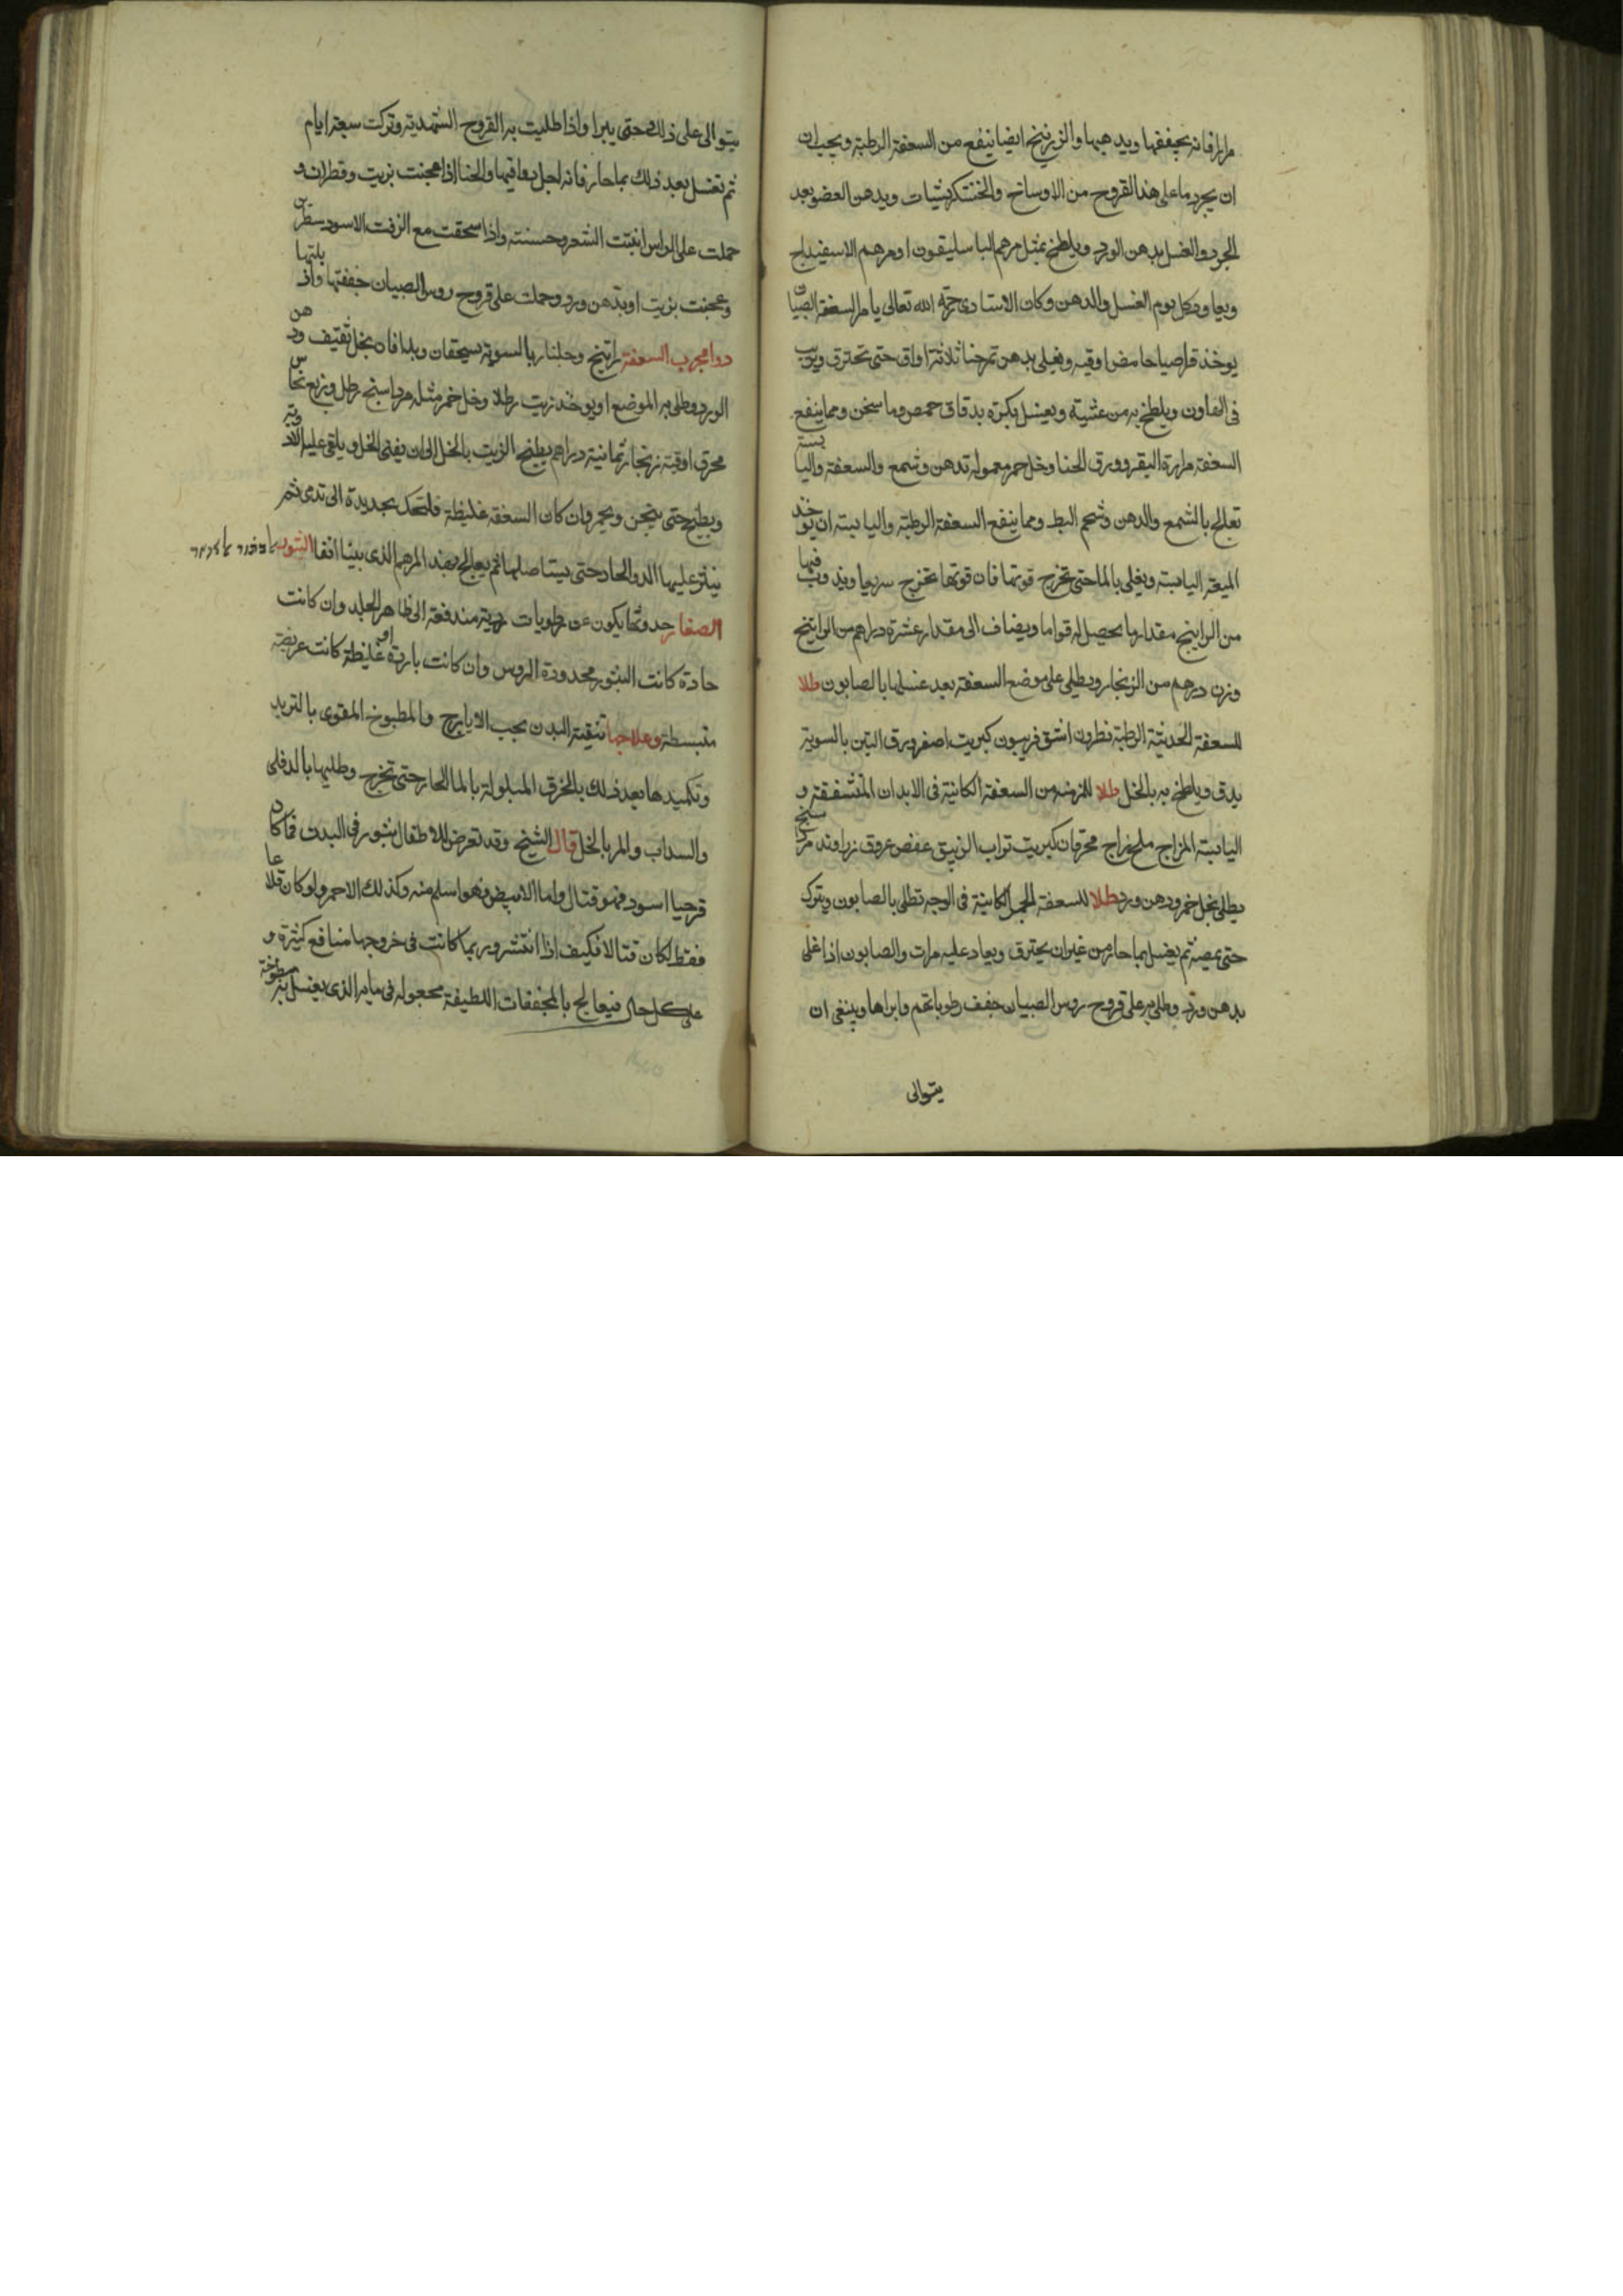 مرارا فانه يجففها ويدهبها والزرنيخ ايضا ينفع من السعفة الرطبة ويجب ان
ان يجرد ما على هذا القروح من الاوساخ والخشكريشيات ويدهن العضو بعد
الجرد والغسل بدهن الورد ويلطخ بمثل مرهم الباسليقون او مرهم الاسفيداج
ويعاود كل يوم الغسل والدهن وكان الاستادى رحمة الله تعالى يامر لسعفة الصبيان
يوخذ قراصيا حامض اوقيه ويغلى بدهن ثلاثة اواق حتى تحترق
فى الهاون ويلطخ به من عشية ويغسل بكرة بدقاق حمص وما سخن ومما ينفع
السعفة مرارة البقر وورق الحنا وخل خمر معموله بدهن وشمع والسعفة واليابسة
تعالج بالشمع والدهن وشحم البط ومما ينفع السعفة الرطبة واليابسة ان يوخذ
الميعة اليابسة ويغلى بالما حتى تخرج قوتها فان قوتها تخرج سريعا ويذوب فيها
من الراينج مقدار ما يحصل له قواما ويضاف الى مقدار عشرة دراهم من الراتينج
وزن درهم من الزنجار ويطلى على موضع السعفة بعد غسلها بالصابون طلا
للسعفة الحديثة الرطبة نطرون اشق فربيون كبريت اصفر ورق التين بالسوية
يدق ويلطخ به بالخل طلا للمزمنه من السعفة الكائنة فى الابدان المتشققة و
اليابسة المزاج ملح زاج محرقان كبريت تراب الزيبق عفص عروق زراوند مرداسنج
يطلى بخل خمر ودهن ورد طلا للسعفة الكائنة فى الوجه تطلى بالصابون ويترك
حتى ثم يغسل بما حار من غير ان يحترق ويعاد عليه مرات والصابون اذا غلى
بدهن ورد وطلى به على قروح روس الصبيان جفف رطوباتهم وابراها وينبغى ان
يتوالى
يتوالى على ذلك حتى يبرا واذا طليت به القروح الشهدية وتركت سبعة ايام
ثم تغسل بعد ذلك بما حار فانه والحنا اذا عجنت بزيت وقطران و
حملت على الراس انبتت الشعر وحسنته واذا سحقت مع الزفت الاسود
وعجنت بزيت او بدهن ورد وحملت على قروح روس الصبيان جففتها
دوا مجرب السعفة راتينج وجلنار بالسوية يسحقان ويدافان بخل ثقيف ودهن
الورد وطلى به الموضع او يوخذ زيت رطلا وخل خمر مثله مرداسنج رطل وربع نحاس
محرق اوقية زنجار ثمانية دراهم يطبخ الزيت بالخل الى ان يفنى الخل ويلقى عليه الادوية
ويطبخ حتى يثخن ويحمر وان كان السعفة غليظة فلتحك بحديدة الى تدمى ثم
ينثر عليها الدوا الحاد حتى يستاصلها ثم يعالج بهذا المرهم الذى بينا انفا البثور
الصغار حدوثها يكون عن رطوبات ردية مندفعة الى ظاهر الجلد وان كانت
حادة كانت البثور محدودة الروس وان كانت باردة غليظة كانت عريضة
منبسطة وعلاجها تنقية البدن بحب الايارج والمطبوخ المقوى بالتربد
وتكميدها بعد ذلك بالخرق المبلولة بالما الحار حتى تخرج وطليها بالدفلى
والسداب والمر بالخل قال الشيخ وقد تعرض للاطفال بثور فى البدن فما كان
قرحيا اسود فهو قتال واما الابيض فهو اسلم منه وكذلك الاحمر ولو كان قلاعا
فقط لكان قتالا فكيف اذا انتشر وربما كانت فى خروجها منافع كثيرة و
على كل حال فيعالج بالمجففات اللطيفة مجعوله فى مايه الذى يغسل به مطبوخة